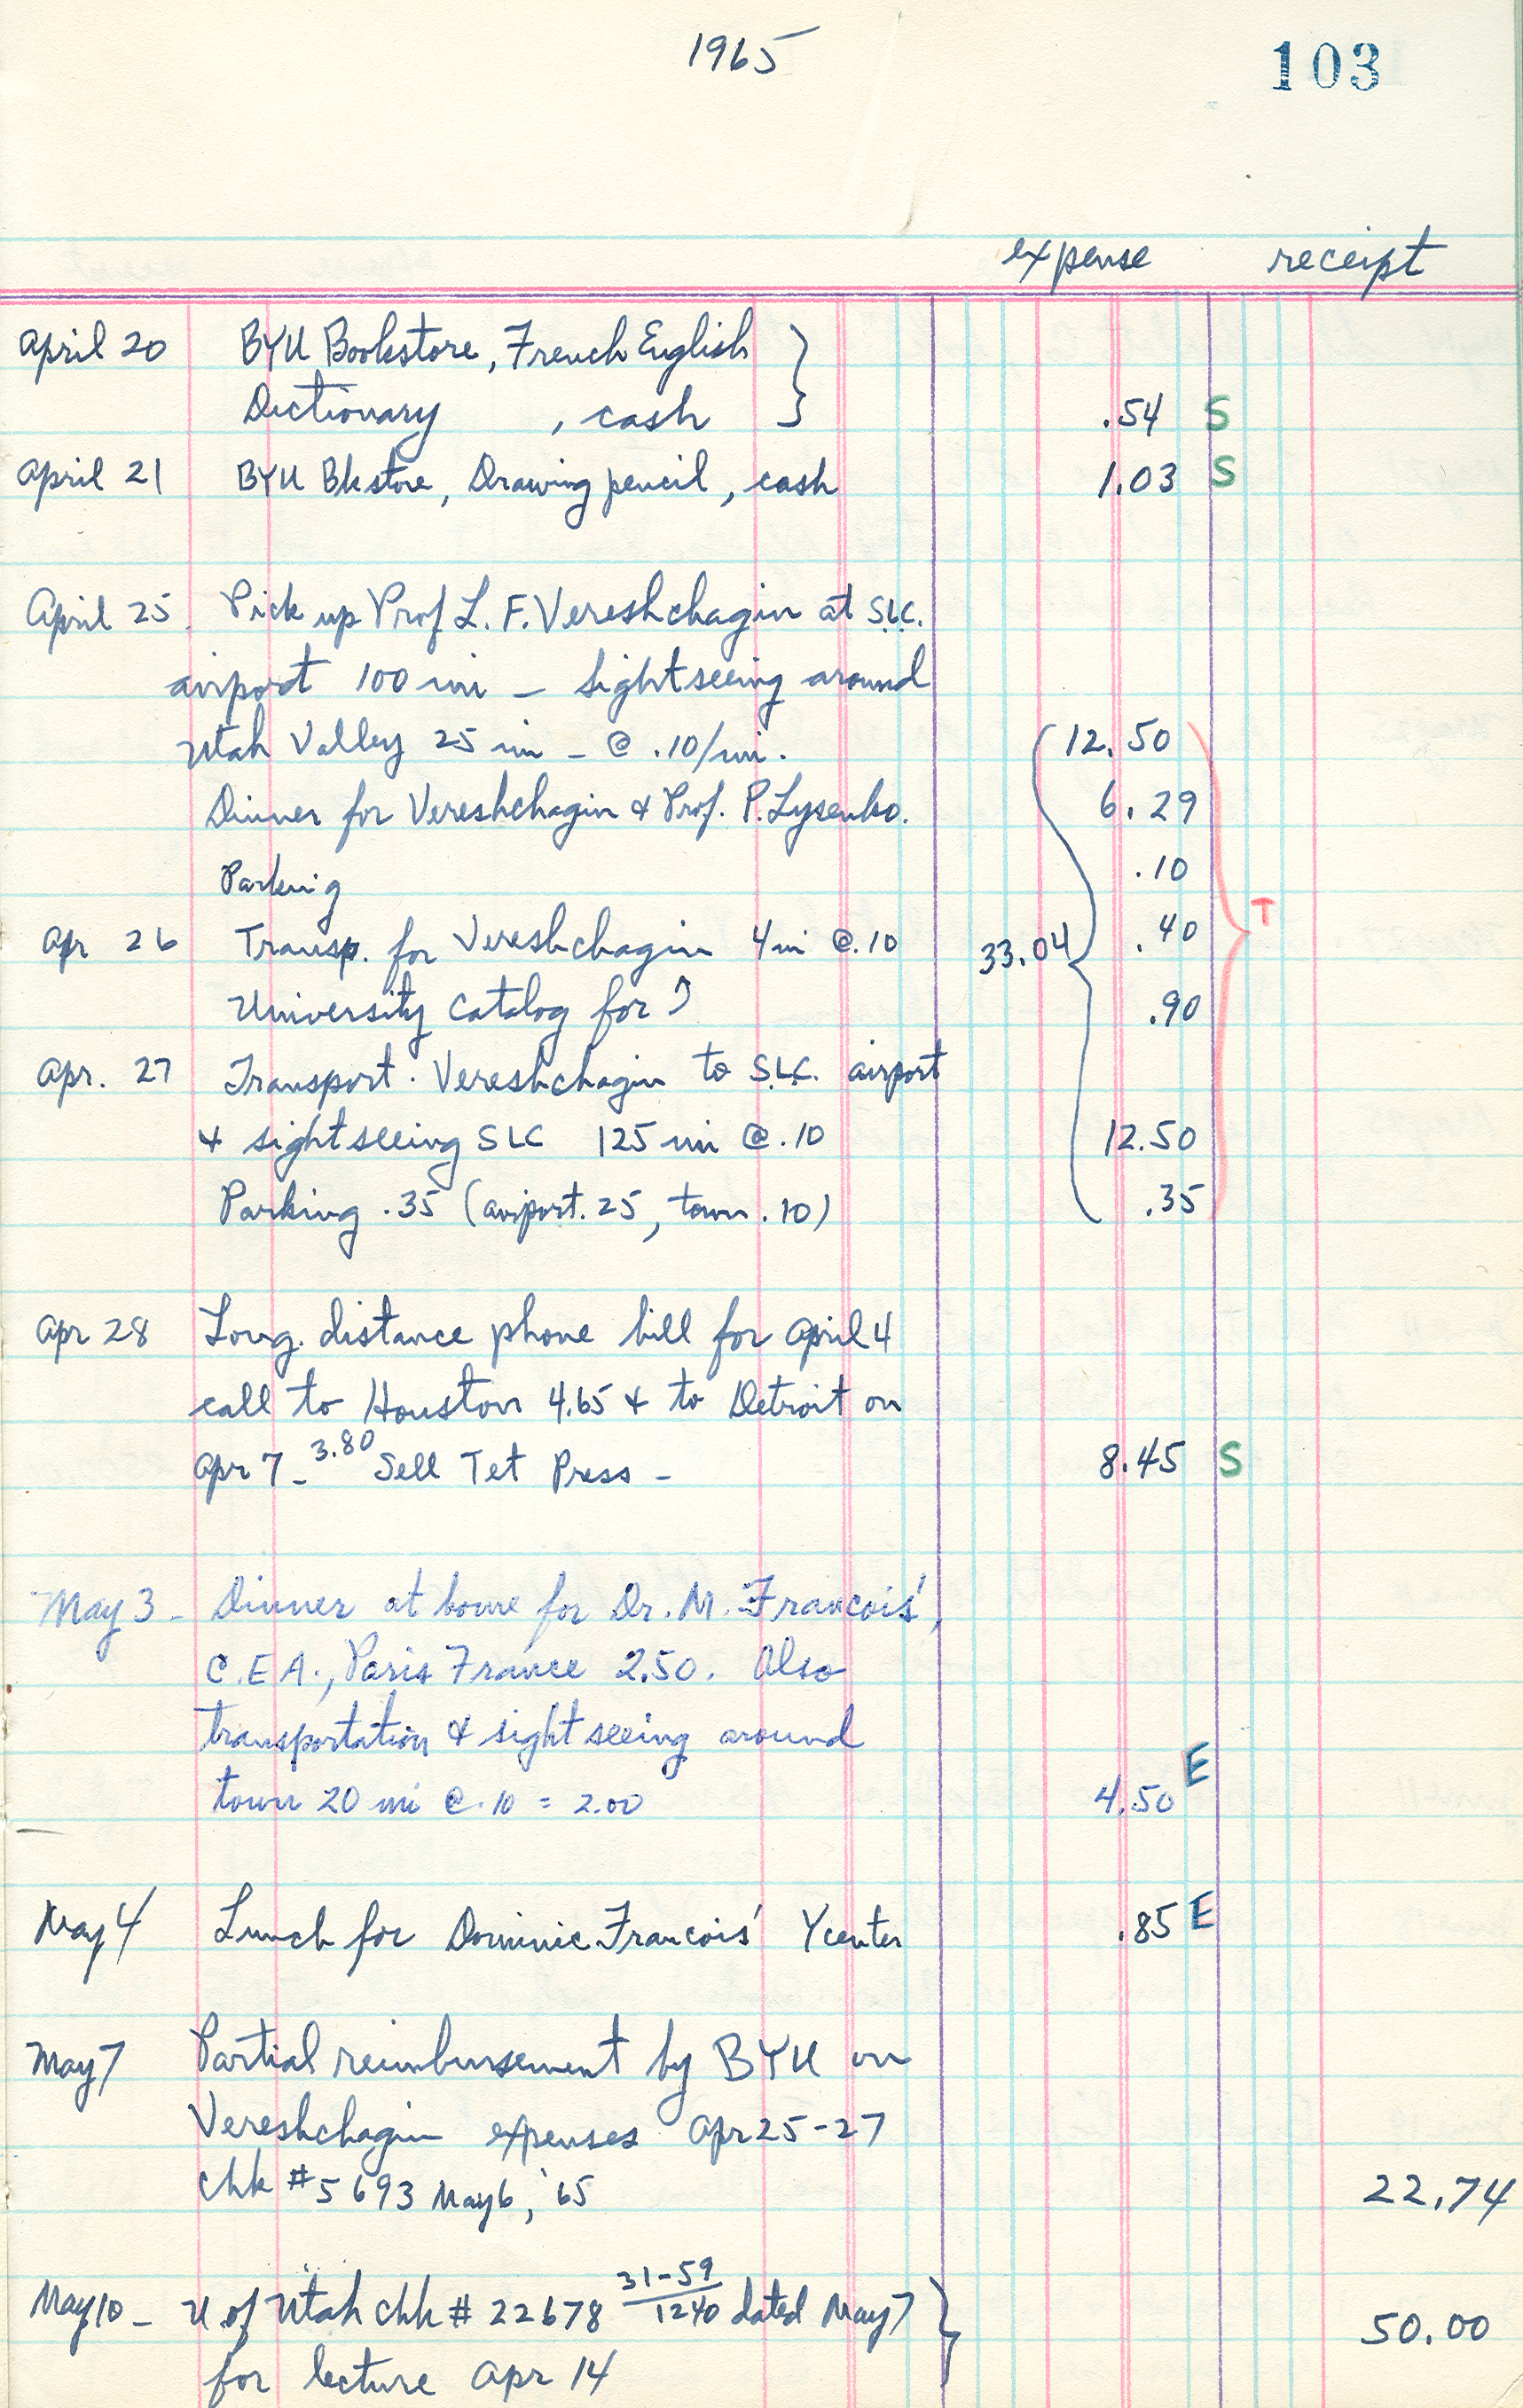 1965
103
expense receipt
April 20 BYU Bookstore, French English
Dictionary , cash .54 S
April 21 BYU Bkstore, Drawing pencil, cash 1.03 S
April 25. Pick up Prof L. F. Vereshchagin at S.L.C.
airport 100 mi – Sightseeing around
Utah Valley 25 mi – @ .10/mi. 12.50
Dinner for Vereshchagin & Prof. P. Lysenko. 6.29
Parking .10
T
Apr 26 Transp. for Vereshchagin 4 mi @ .10 33.04 .40
University Catalog for " .90
Apr. 27 Transport. Vereshchagin to S.L.C. airport
& sightseeing SLC 125 mi @ .10 12.50
Parking .35 (airport .25, town .10) .35
Apr 28 Long distance phone bill for April 4
call to Houston 4.65 & to Detroit on
Apr 7 – 3.80 Sell Tet Press – 8.45 S
May 3 – Dinner at home for Dr. M. Francois',
C.E.A., Paris France 2.50. Also
transportation & sight seeing around
town 20 mi @ .10 = 2.00 4.50 E
May 4 Lunch for Dominic Francois' Ycenter .85 E
May 7 Partial reimbursement by BYU on
Vereshchagin expenses Apr 25-27
Chk #5693 May 6, '65 22.74
May 10 – U. of Utah chk # 22678 31-59/1240 dated May 7 50.00
for lecture Apr 14